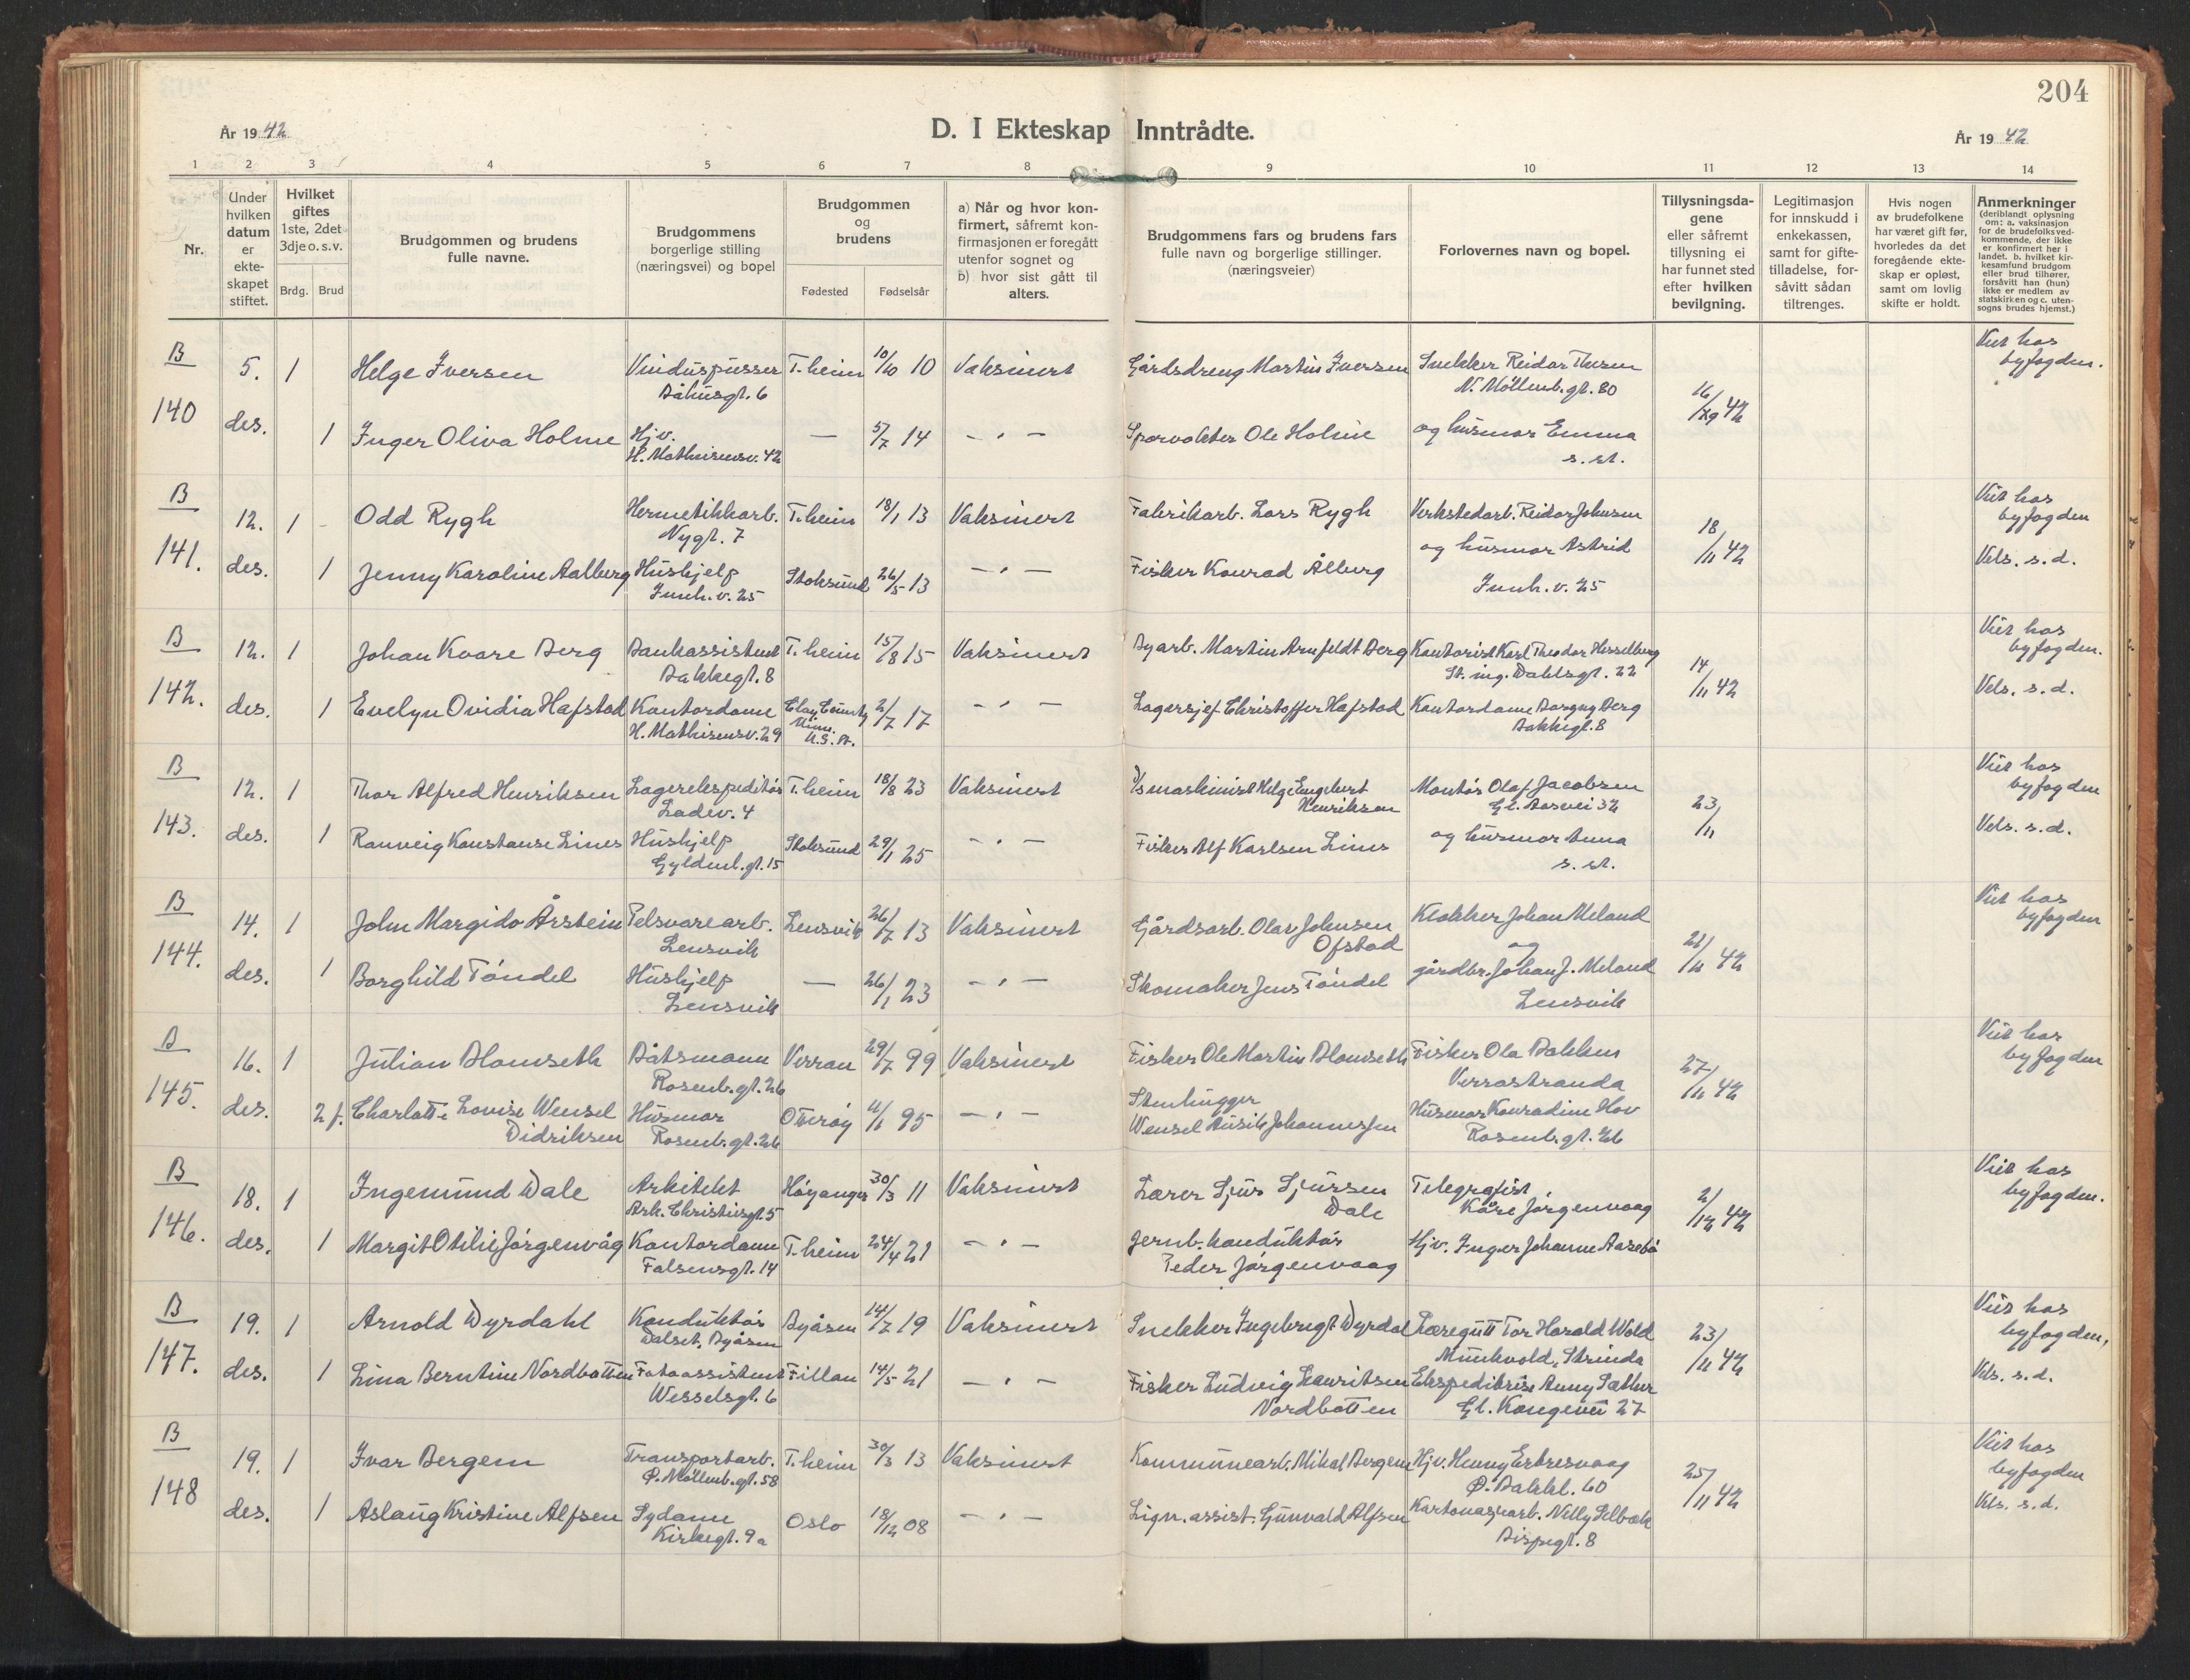 204
År 1942
D. I Ekteskap Inntrådte.
År 1942
1 2 3 4 5 6 7 8 9 10 11 12 13 14
Nr.
Under hvilken datum er ekteskapet stiftet.
Hvilket giftes 1ste, 2det 3dje o. s. v.
Brdg. Brud
Brudgommen og brudens fulle navne.
Brudgommens borgerlige stilling (næringsvei) og bopel
Brudgommen og brudens
Fødested Fødselsår
a) Når og hvor konfirmert, såfremt konfirmasjonen er foregått utenfor sognet og
b) hvor sist gått til alters.
Brudgommens fars og brudens fars fulle navn og borgerlige stillinger. (næringsveier)
Forlovernes navn og bopel.
Tillysningsdagene eller såfremt tillysning ei har funnet sted efter hvilken bevilgning.
Legitimasjon for innskudd i enkekassen, samt for giftetilladelse, forsåvitt sådan tiltrenges.
Hvis nogen av brudefolkene har været gift før, hvorledes da det foregående ekteskap er opløst, samt om lovlig skifte er holdt.
Anmerkninger (deriblandt oplysning om: a. vaksinasjon for de brudefolks vedkommende, der ikke er konfirmert her i landet. b. hvilket kirkesamfund brudgom eller brud tilhører, forsåvitt han (hun) ikke er medlem av statskirken og c. utensogns brudes hjemst.)
B 5. 1 Helge Iversen Vinduspusser T.heim 10/10 10 Vaksinert Gårdsdreng Martin Iversen Snekker Reidar Thesen Viet hos
Båhusgt. 6 N. Møllenb. gt. 80 byfogden.
140 des. 1 Inger Oliva Holme Hjv. — 5/7 14 - " - Sporvokter Ole Holme og husmor Emma 42
H. Mathisensv. 42 s. st.
B 12. 1 Odd Rygh Hermetikkarb. T.heim 18/1 13 Vaksinert Fabrikarb. Lars Rygh Verkstedarb. Reidar Johnsen 18/11 42 Viet hos
Nygt. 7 og husmor Astrid byfogden
141. des. 1 Jenny Karoline Aalberg Hushjelp Stoksund 26/5 13 - " - Fisker Konrad Ålberg Vels. s. d.
Innh. v. 25 Innh. v. 25
B 12. 1 Johan Kvare Berg Bankassistent T.heim 15/8 15 Vaksinert Byarb. Martin Arnfeldt Berg Kontorist Karl Theodor Hesselberg 14/11 42 Viet hos
Bakkegt. 8 St. ing. Dahlsgt. 22 byfogden.
142. des. 1 Evelyn Ovidia Hafstad Kontordame Clay County 2/7 17 - " - Lagersjef Christoffer Hafstad Kontordame Borgny Berg Vels. s. d.
H. Mathisensv. 29 Minn. U.S.A. Bakkegt. 8
B 12. 1 Thor Alfred Henriksen Lagerekspeditør T.heim 18/8 23 Vaksinert D/s maskinist Helge Engebert Montør Olaf Jacobsen 23/11 Viet hos
Ladev. 4 Henriksen Gl. Aasvei 32 byfogden
143. des. 1 Ranveig Konstanse Lines Hushjelp Stoksund 29/1 25 - " - Fisker Alf Karlsen Lines og husmor Anna Vels. s. d.
Gyldenl. gt. 15 s. st.
B 14. 1 John Margido Årstein Pelsvarearb. Lensvik 26/7 13 Vaksinert Gårdsarb. Olav Johnsen Klokker Johan Meland Viet hos
Lensvik Ofstad og byfogden
144. des. 1 Borghild Tøndel Hushjelp — 26/1 23 - " - Skomaker Jens Tøndel gårdbr. Johan J. Meland 42
Lensvik Lensvik
B 16. 1 Julian Blomseth Båtsmann Verran 29/7 99 Vaksinert Fisker Ole Martin Blomseth Fisker Ola Bakken 27/11 42 Viet hos
Rosenb. gt. 26 Verrastranda byfogden
145. des. 2 f. Charlotte Lovise Wensel Husmor Otterøy 95 - " - Stenhugger Husmor Konradine Hov
Didriksen Rosenb. gt. 26 Wensel Johannessen Rosenb. gt. 26
B 18. 1 Ingemund Dale Arkitekt Høyanger 30/3 11 Vaksinert Lærer Sjur Sjursen Telegrafist 2/12 42 Viet hos
Ark. Christiesgt. 5 Dale Kåre Jørgenvaag byfogden.
146. des. 1 Margit Otilie Jørgenvåg Kontordame T.heim 24/4 21 - " - Jernb. konduktør Hjv. Inger Johanne Aasebø
Falsensgt. 14 Peder Jørgenvaag
B 19. 1 Arnold Dyrdahl Konduktør Byåsen 14/7 19 Vaksinert Snekker Ingebrigt Dyrdal Læregutt Tor Harald Wold 23/11 42 Viet hos
Dalset, Byåsen Munkvold, Strinda byfogden,
147. des. 1 Lina Berntine Nordbotten Fotoassistent Fillan 14/5 21 - " - Fisker Ludvig Lauritsen Ekspeditrise Anny Sæther Vels. s. d.
Wesselsgt. 6 Nordbotten Gl. Kongevei 27
B 19. 1 Ivar Bergem Transportarb. T.heim 30/3 13 Vaksinert Kommunearb. Mikal Bergem Hjv. Henny Erkresvaag 25/11 42 Viet hos
Ø. Møllenb. gt. 58 Ø. Bakkl. 60 byfogden
148 des. 1 Aslaug Kristine Alfsen Sydame Oslo 18/12 08 - " - Lign. assist. Gunvald Alfsen Kartonasjearb. Nelly Selbæk Vels. s. d.
Kirkegt. 9a Bispegt. 8